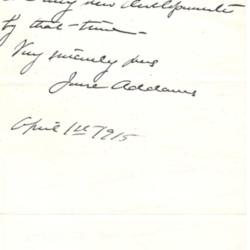 any new developments
by that time -
Very sincerely yours
Jane Addams
April 1st 1915